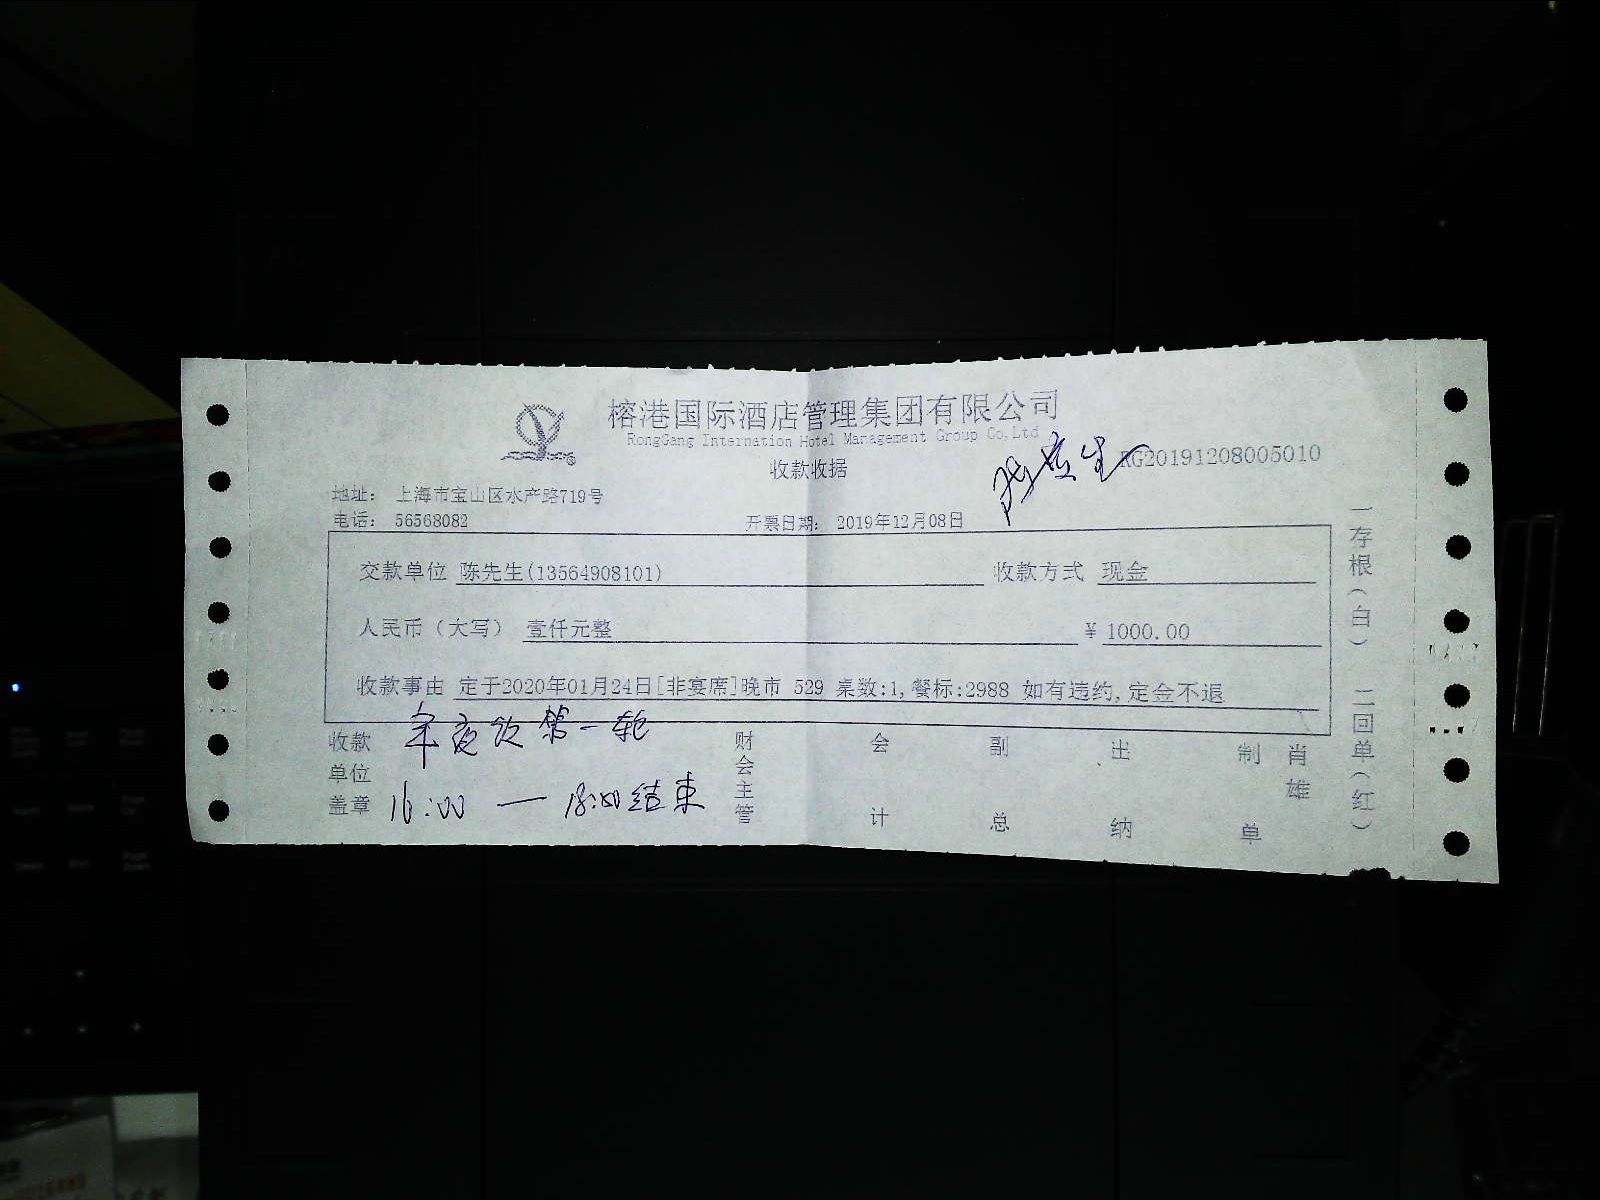 榕港国际酒店管理集团有限公司
RongGang Internation Hotel Management Group Co,Ltd
收款收据
RG20191208005010
地址： 上海市宝山区水产路719号
电话： 56568082 开票日期： 2019年12月08日
交款单位 陈先生(13564908101) 收款方式 现金
人民币（大写） 壹仟元整 ¥ 1000.00
收款事由 定于2020年01月24日[非宴席]晚市 529 桌数:1,餐标:2988 如有违约,定金不退
年夜饭第一轮
16:00 — 18:00结束
收款单位盖章
财会主管
会计
副总
出纳
制单
肖雄
一存根（白） 二回单（红）